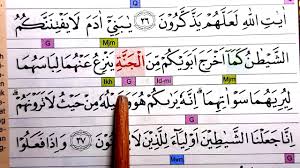 Q
اٰيٰتِ اللّٰهِ لَعَلَّهُمْ يَذَّكَّرُوْنَ ٢٦ يٰبَنِيْٓ اٰدَمَ لَا يَفْتِنَنَّكُمُ
G Mjm
الشَّيْطٰنُ كَمَآ اَخْرَجَ اَبَوَيْكُمْ مِّنَ الْجَنَّةِ يَنْزِعُ عَنْهُمَا لِبَاسَهُمَا
Ikh G Id-mi Mjm
لِيُرِيَهُمَا سَوْاٰتِهِمَاۗ اِنَّهٗ يَرٰىكُمْ هُوَ وَقَبِيْلُهٗ مِنْ حَيْثُ لَا تَرَوْنَهُمْۗ
G
اِنَّا جَعَلْنَا الشَّيٰطِيْنَ اَوْلِيَاۤءَ لِلَّذِيْنَ لَا يُؤْمِنُوْنَ ٢٧ وَاِذَا فَعَلُوْا